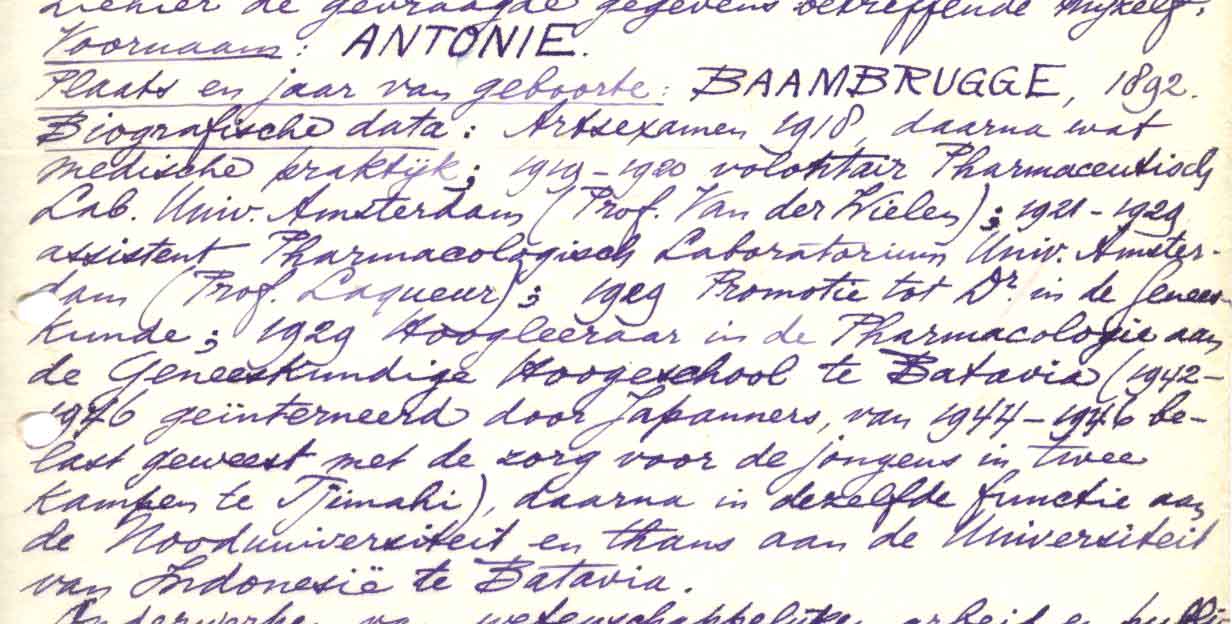 Ziehier de gevraagde gegevens betreffende mijzelf.
Voornaam: ANTONIE.
Plaats en jaar van geboorte: BAAMBRUGGE, 1892.
Biografische data: Artsexamen 1918, daarna wat
medische praktijk; 1919-1920 volontair Pharmaceutisch
Lab. Univ. Amsterdam (Prof. Van der Wielen); 1921-1929
assistent Pharmacologisch Laboratorium Univ. Amster-
dam (Prof. Laqueur); 1929 Promotie tot Dr. in de Genees-
kunde; 1929 Hoogleeraar in de Pharmacologie aan
de Geneeskundige Hoogeschool te Batavia (1942-
1946 geïnterneerd door Japanners, van 1944-1946 be-
last geweest met de zorg voor de jongens in twee
kampen te Tjimahi), daarna in dezelfde functie aan
de Nooduniversiteit en thans aan de Universiteit
van Indonesië te Batavia.
Onderwerpen van wetenschappelijken arbeid en